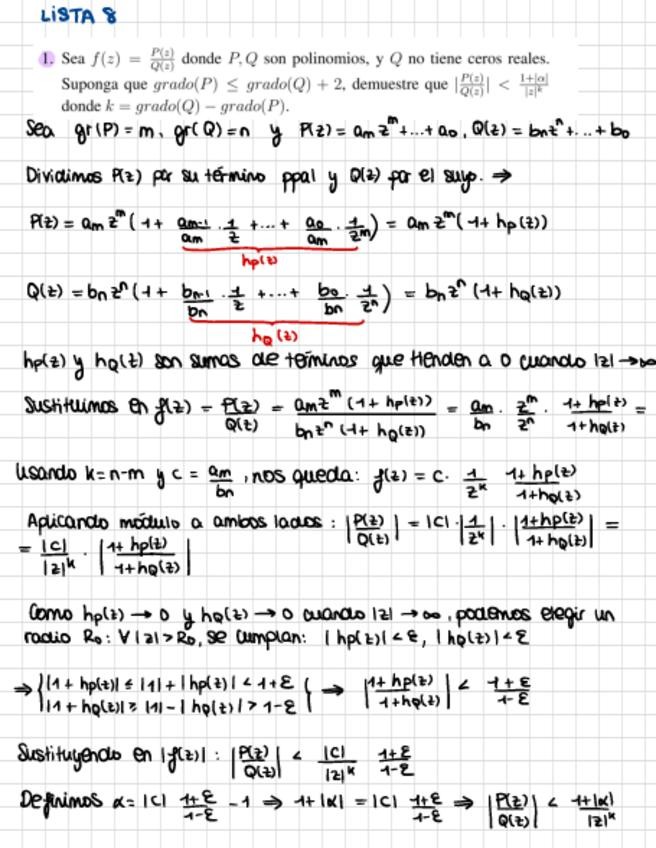 LISTA 8
1. Sea f(z) = P(z)/Q(z) donde P, Q son polinomios, y Q no tiene ceros reales.
Suponga que grado(P) ≤ grado(Q) + 2, demuestre que |P(z)/Q(z)| < 1+|α|/|z|^k
donde k = grado(Q) − grado(P).
Sea gr(P)=m, gr(Q)=n y P(z) = a_m z^m+...+a_0, Q(z) = b_n z^n+...+b_0
Dividimos P(z) por su término ppal y Q(z) por el suyo. ⇒
P(z) = a_m z^m (1 + a_{m-1}/a_m · 1/z +...+ a_0/a_m · 1/z^m) = a_m z^m (1+ h_P(z))
h_P(z)
Q(z) = b_n z^n (1 + b_{n-1}/b_n · 1/z +...+ b_0/b_n · 1/z^n) = b_n z^n (1+ h_Q(z))
h_Q(z)
h_P(z) y h_Q(z) son sumas de términos que tienden a 0 cuando |z| → ∞
Sustituimos en f(z) = P(z)/Q(z) = a_m z^m (1+ h_P(z)) / b_n z^n (1+ h_Q(z)) = a_m/b_n · z^m/z^n · 1+ h_P(z)/1+ h_Q(z) =
Usando k=n-m y c = a_m/b_n, nos queda: f(z) = c · 1/z^k 1+ h_P(z)/1+ h_Q(z)
Aplicando módulo a ambos lados: |P(z)/Q(z)| = |c| · |1/z^k| · |1+ h_P(z)/1+ h_Q(z)| =
= |c|/|z|^k · |1+ h_P(z)/1+ h_Q(z)|
Como h_P(z) → 0 y h_Q(z) → 0 cuando |z| → ∞, podemos elegir un
radio R_0: ∀|z|>R_0, se cumplan: |h_P(z)| < ε, |h_Q(z)| < ε
⇒ { |1 + h_P(z)| ≤ |1| + |h_P(z)| < 1+ε
|1 + h_Q(z)| ≥ |1| - |h_Q(z)| > 1-ε } ⇒ |1+ h_P(z)/1+ h_Q(z)| < 1+ε/1-ε
Sustituyendo en |f(z)| : |P(z)/Q(z)| < |c|/|z|^k 1+ε/1-ε
Definimos α = |c| 1+ε/1-ε - 1 ⇒ 1+|α| = |c| 1+ε/1-ε ⇒ |P(z)/Q(z)| < 1+|α|/|z|^k